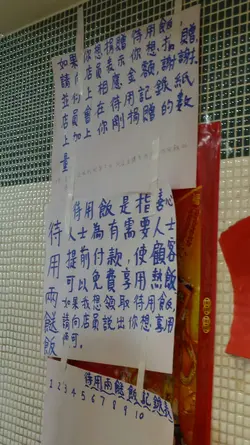 如果你想捐贈待用飯,
請向店員表示你想捐贈
並付上相應金額,謝謝
店員會在待用記錄紙
上加上你剛捐贈的數
量
待用兩餸飯
待用飯是指善心
人士為有需要人士
提前付款,使顧客
可以免費享用熱飯
如果我想領取待用飯,
請向店員說出你想享用
即可。
待用兩餸飯記錄紙
1 2 3 4 5 6 7 8 9 10